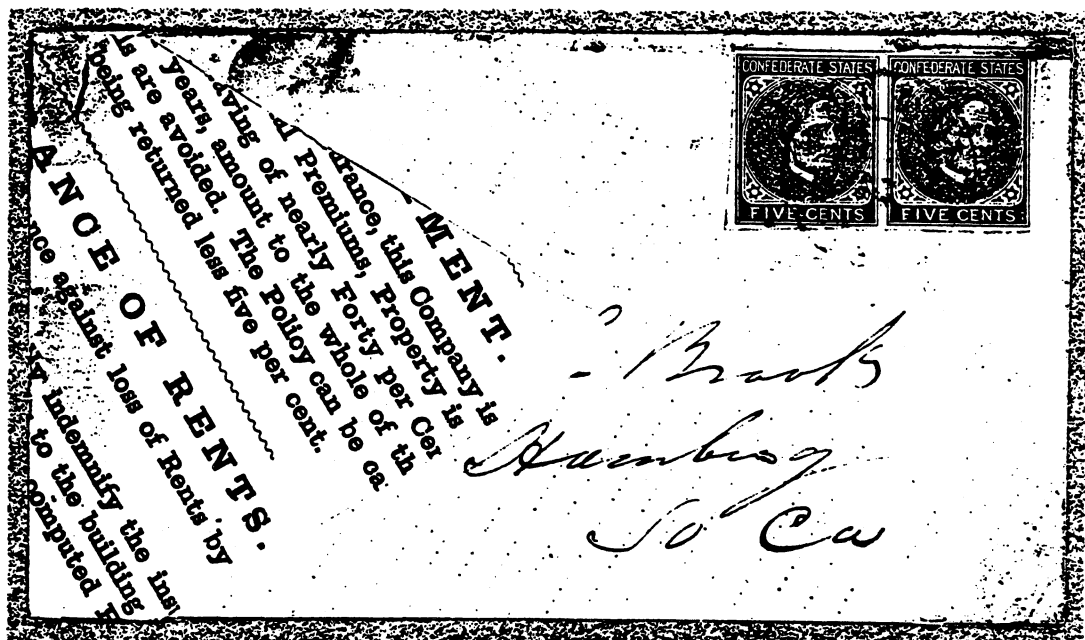 CONFEDERATE STATES
FIVE CENTS
CONFEDERATE STATES
FIVE CENTS
MENT.
urance, this Company is
Premiums, Property is
aving of nearly Forty per Cen
years, amount to the whole of th
ls are avoided. The Policy can be ca
being returned less five per cent.
ANCE OF RENTS.
nce against loss of Rents by
indemnify the insu
to the building
computed
Brooks
Hamburg
So Ca